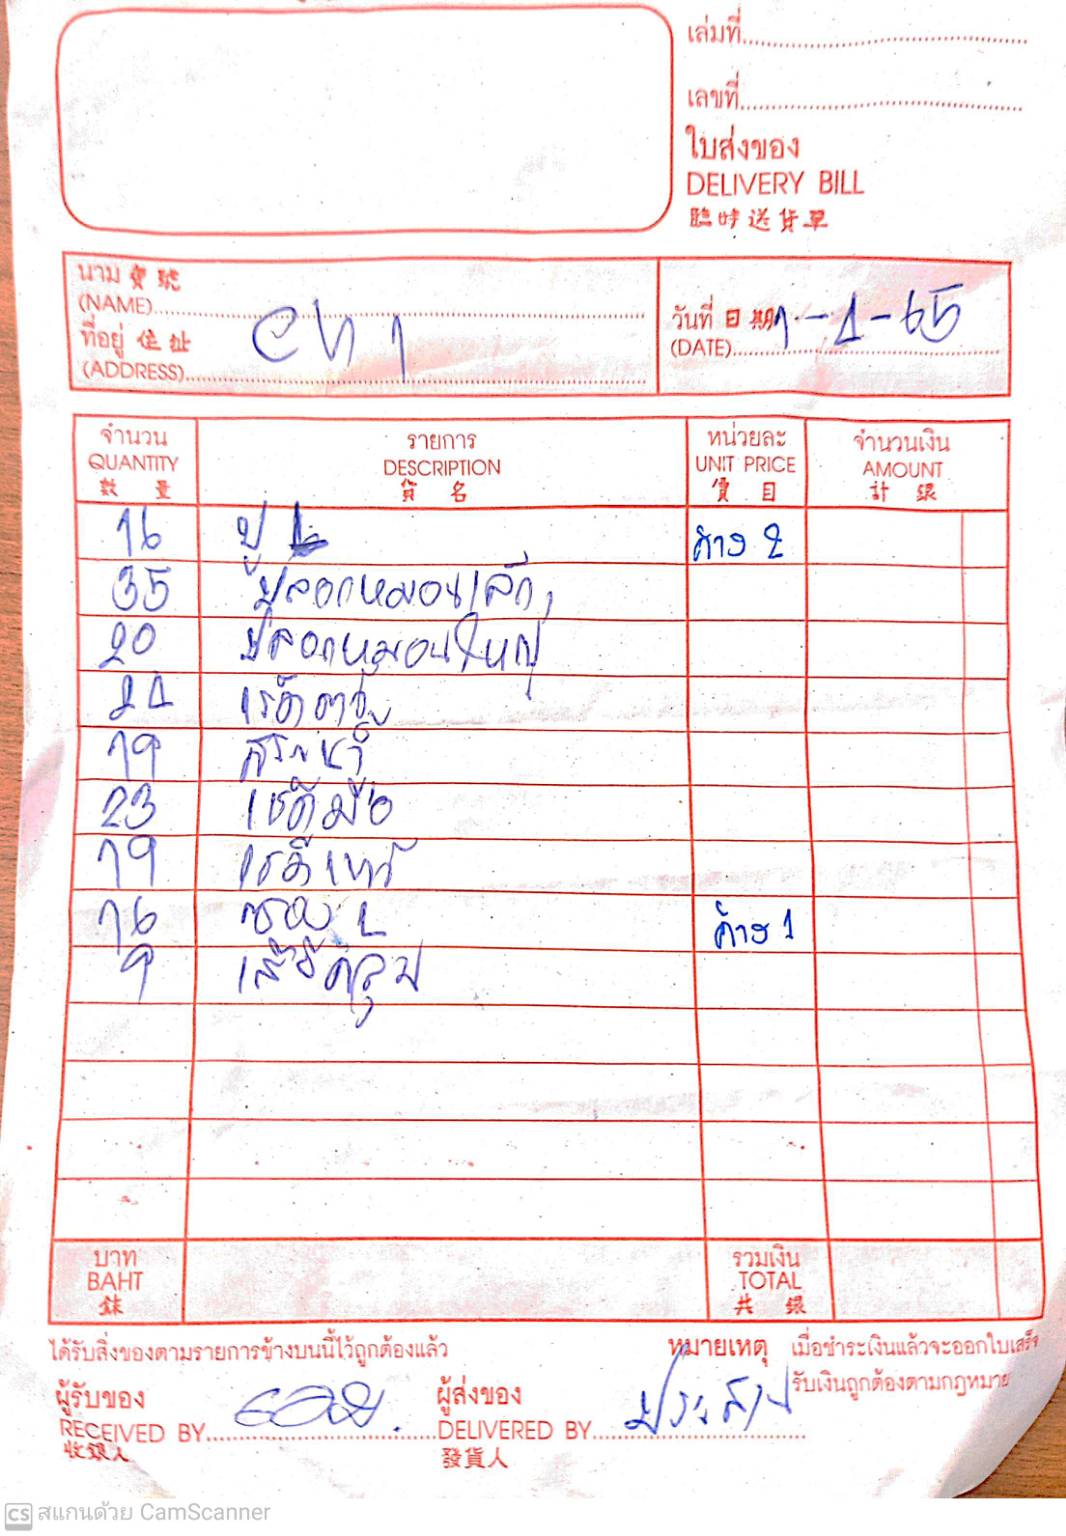 เล่มที่
เลขที่
ใบส่งของ
DELIVERY BILL
臨時送貨單
นาม 寶號
(NAME)
ที่อยู่ 住址
(ADDRESS)
ch 1
วันที่ 日期 1-1-65
(DATE)
จำนวน รายการ หน่วยละ จำนวนเงิน
QUANTITY DESCRIPTION UNIT PRICE AMOUNT
數量 貨名 價目 計銀
16 ปู L ค้าง 2
35 ปลอกหมอนเล็ก
20 ปลอกหมอนใหญ่
24 เช็ดตัว
19 สระน้ำ
23 เช็ดมือ
19 เช็ดเท้า
16 ซอง L ค้าง 1
9 เสื้อคลุม
บาท รวมเงิน
BAHT TOTAL
銖 共銀
ได้รับสิ่งของตามรายการข้างบนนี้ไว้ถูกต้องแล้ว
หมายเหตุ เมื่อชำระเงินแล้วจะออกใบเสร็จ
รับเงินถูกต้องตามกฎหมาย
ผู้รับของ ผู้ส่งของ
RECEIVED BY DELIVERED BY
收銀人 發貨人
CS สแกนด้วย CamScanner